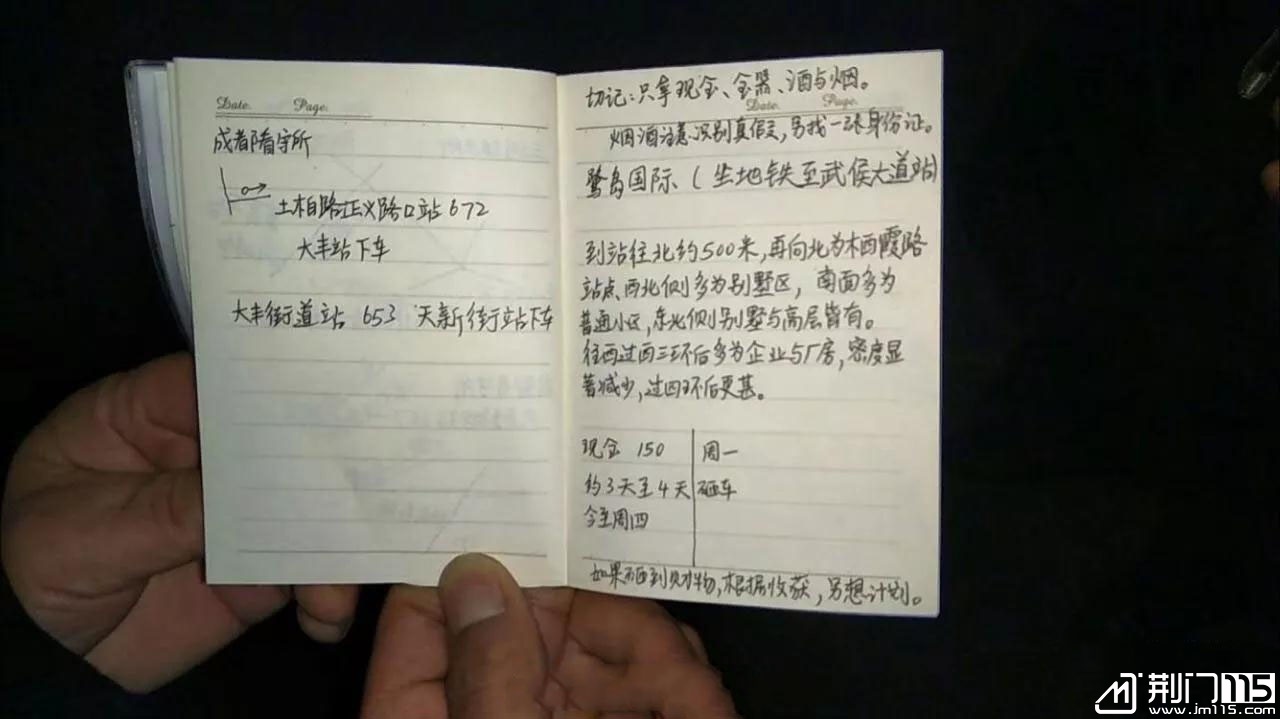 Date. Page.
成都看守所
土柏路正义路口站 672
大丰站下车
大丰街道站 653 天新街站下车
切记:只拿现金、金器、酒与烟。
Date. Page.
烟酒注意识别真假,另找一张身份证。
鹭岛国际、(坐地铁至武侯大道站)
到站往北约500米,再向北为栖霞路
站点、西北侧多为别墅区,南面多为
普通小区,东北侧别墅与高层皆有。
往西过西三环后多为企业与厂房,密度显
著减少,过四环后更甚。
现金 150 周一
约3天至4天 砸车
今至周四
如果砸到财物,根据收获,另想计划。
荆门115
www.jm115.com